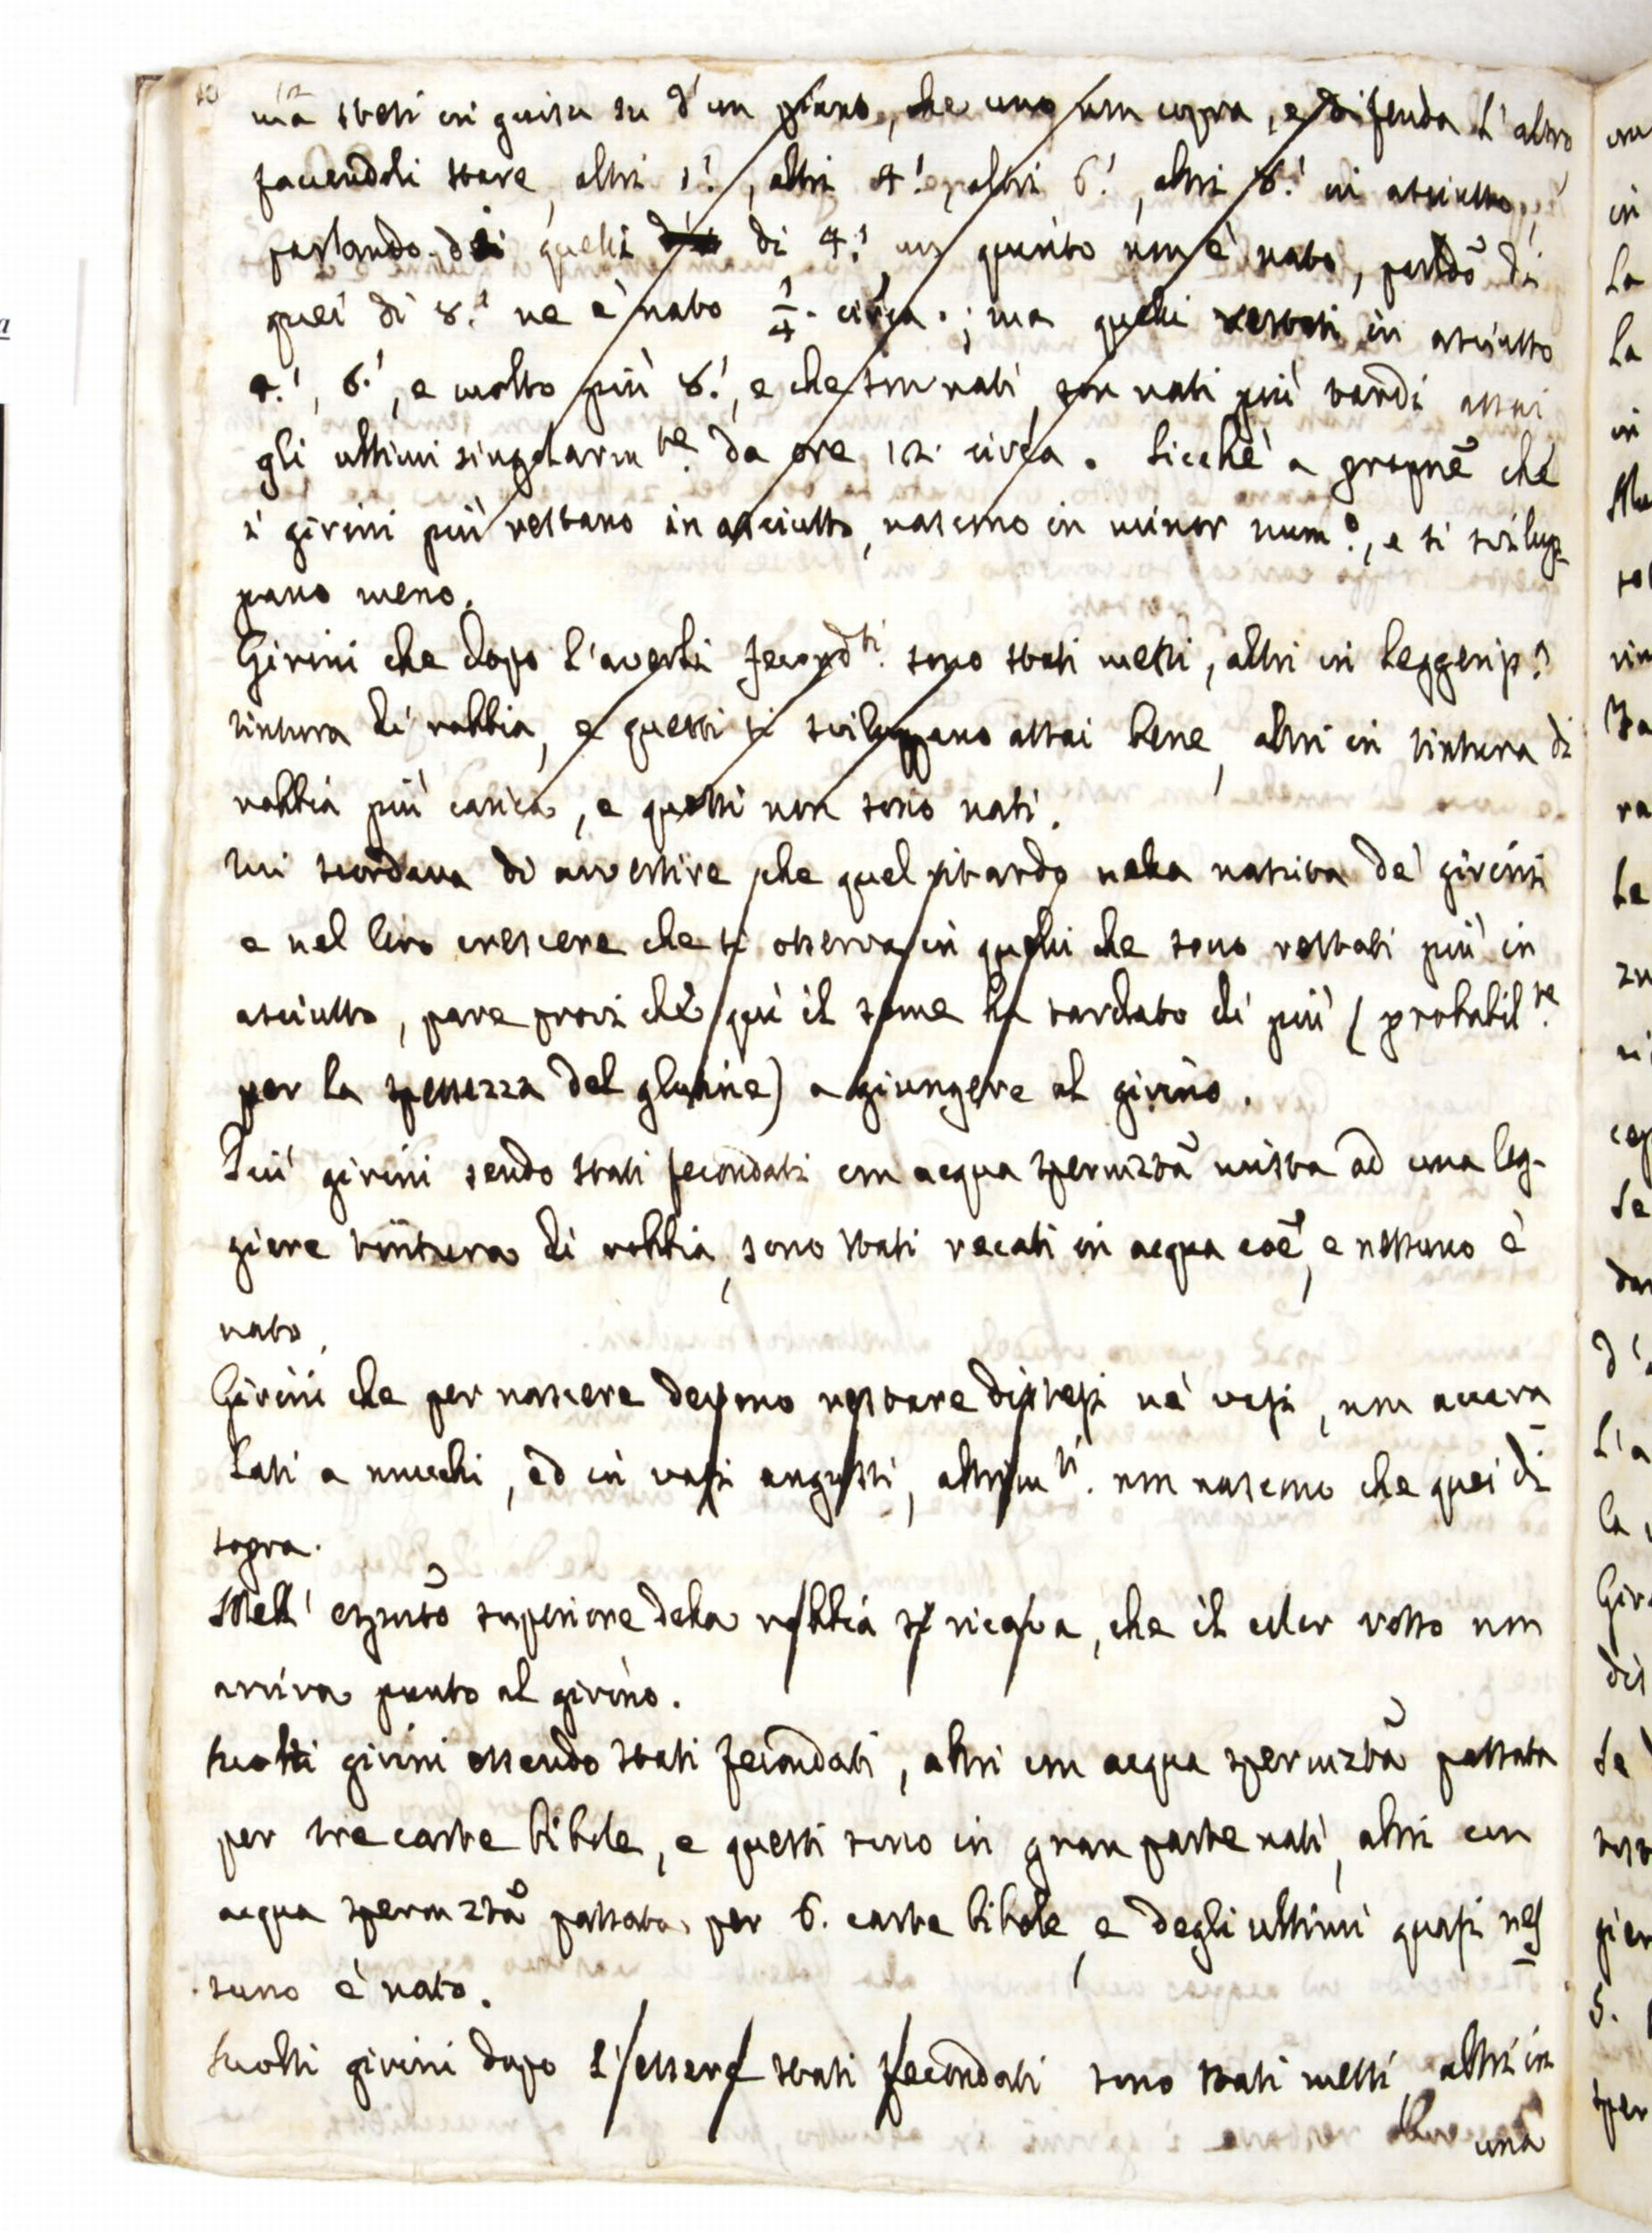 ma stesi in guisa su d'un piano, che uno non copra, e difenda l'altro
facendoli stare, altri 2', altri 4', altri 6', altri 8' in asciutto,
parlando di quelli di 4' un quinto non è nato, parldo di
quei di 8' ne è nato 1/4 circa; ma quelli restati in asciutto
4', 6', e molto più 8', e che son nati, son nati più tardi assai
gli ultimi singolarmte da ore 12 circa. Sicchè a proprne che
i girini più restano in asciutto, nascono in minor numo, e si svilup-
pano meno.
Girini che dopo l'averli fecondti sono stati messi, altri in leggeriss
tintura di robbia, e questi si sviluppano assai bene, altri in tintura di
robbia più carica, e questi non sono nati.
Mi scordava di avvertire che quel ritardo nella nascita de' girini
e nel loro crescere che si osserva in quelli che sono restati più in
asciutto, pare provi che qui il seme ha tardato di più (probabilte
per la spessezza del glutine) a giungere al girino.
Più girini sendo stati fecondati con acqua spermzta mista ad una leg-
giere tintura di robbia, sono stati recati in acqua coe, e nessuno è
nato.
Girini che per nascere devono restare distesi ne' vasi, non accava-
lati a mucchi, ed in vasi angusti, altrimti non nascono che quei di
sopra.
Nell' esprto superiore della robbia si ricava, che il color rosso non
arriva punto al girino.
Molti girini essendo stati fecondati, altri con acqua spermzta passata
per tre carte bibole, e questi sono in gran parte nati, altri con
acqua spermzta passata per 6. carte bibole, e degli ultimi quasi nes-
suno è nato.
Molti girini dopo l'essere stati fecondati sono stati messi, altri in
una